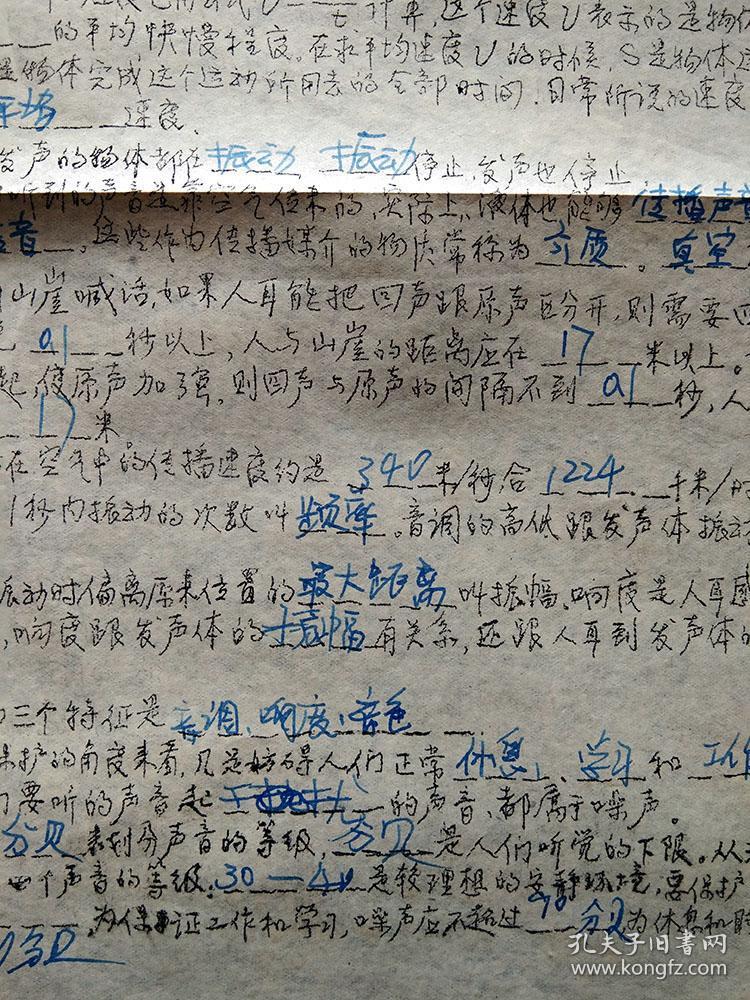 的平均快慢程度。在求平均速度V的时候，S是物体
是物体完成这个运动所用去的全部时间.日常所说的速度
平均 速度.
发声的物体都在 振动 振动 停止,发声也停止
听到的声音是靠空气传来的,实际上,液体也能够 传播声音
声音 。这些作为传播媒介的物质常称为 介质 。真空
山崖喊话,如果人耳能把回声跟原声区分开,则需要回
0.1 秒以上,人与山崖的距离应在 17 米以上。
起,使原声加强,则回声与原声的间隔不到 0.1 秒,人
17 米。
在空气中的传播速度约是 340 米/秒合 1224 千米/时
1秒内振动的次数叫 频率 。音调的高低跟发声体振动
振动时偏离原来位置的 最大距离 叫振幅、响度是人耳感
,响度跟发声体的 振幅 有关系,还跟人耳到发声体的
三个特征是 音调、响度、音色 .
保护的角度来看,凡是妨碍人们正常 休息 、学习 和 工作
要听的声音起 干扰 的声音、都属于噪声。
分贝 来划分声音的等级, 分贝 是人们听觉的下限。从
个声音的等级. 30—40 是较理想的安静环境,要保护
,为保证工作和学习,噪声应不超过 70 分贝 为休息和睡
分贝
孔夫子旧书网
www.kongfz.com